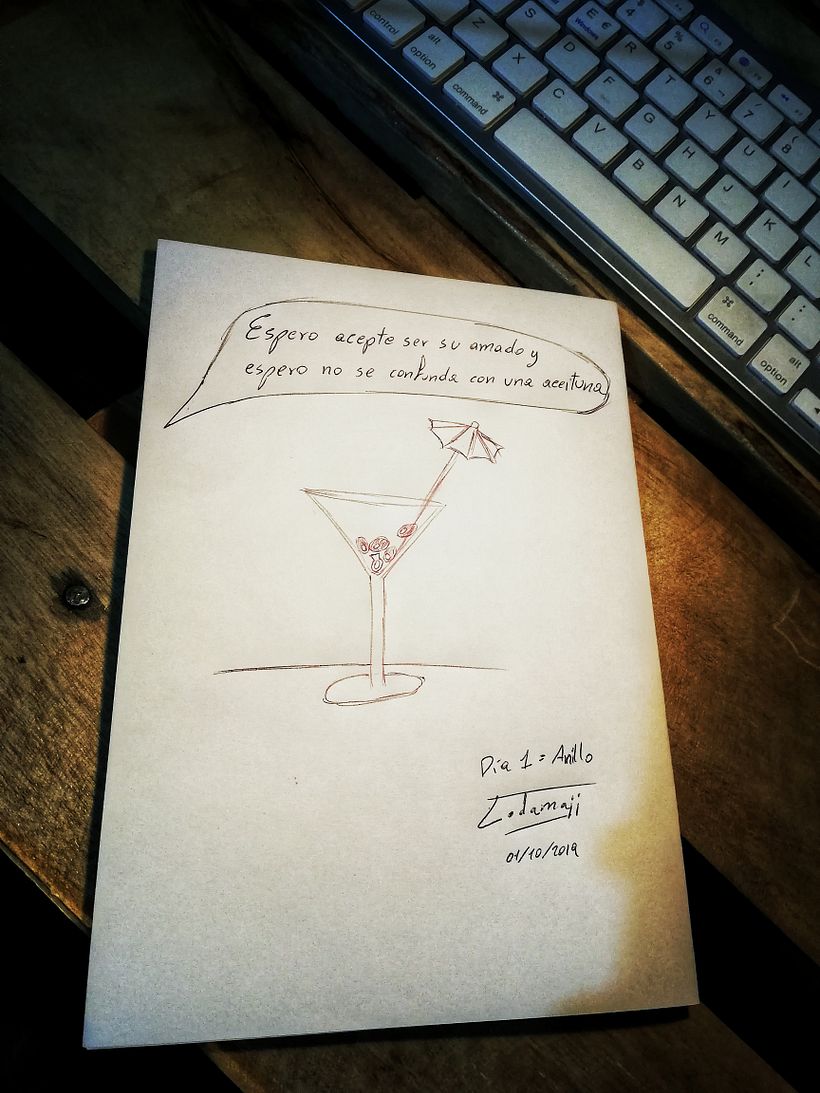 Espero acepte ser su amado y
espero no se confunda con una aceituna
Día 1 = Anillo
Lodamaji
01/10/2019
control
alt
option
command
⌘
Z
X
C
V
B
N
M
S
D
F
G
H
J
K
L
E
€
Windows
R
T
Y
U
I
4
5
%
6
7
/
8
(
;
:
command
⌘
alt
option